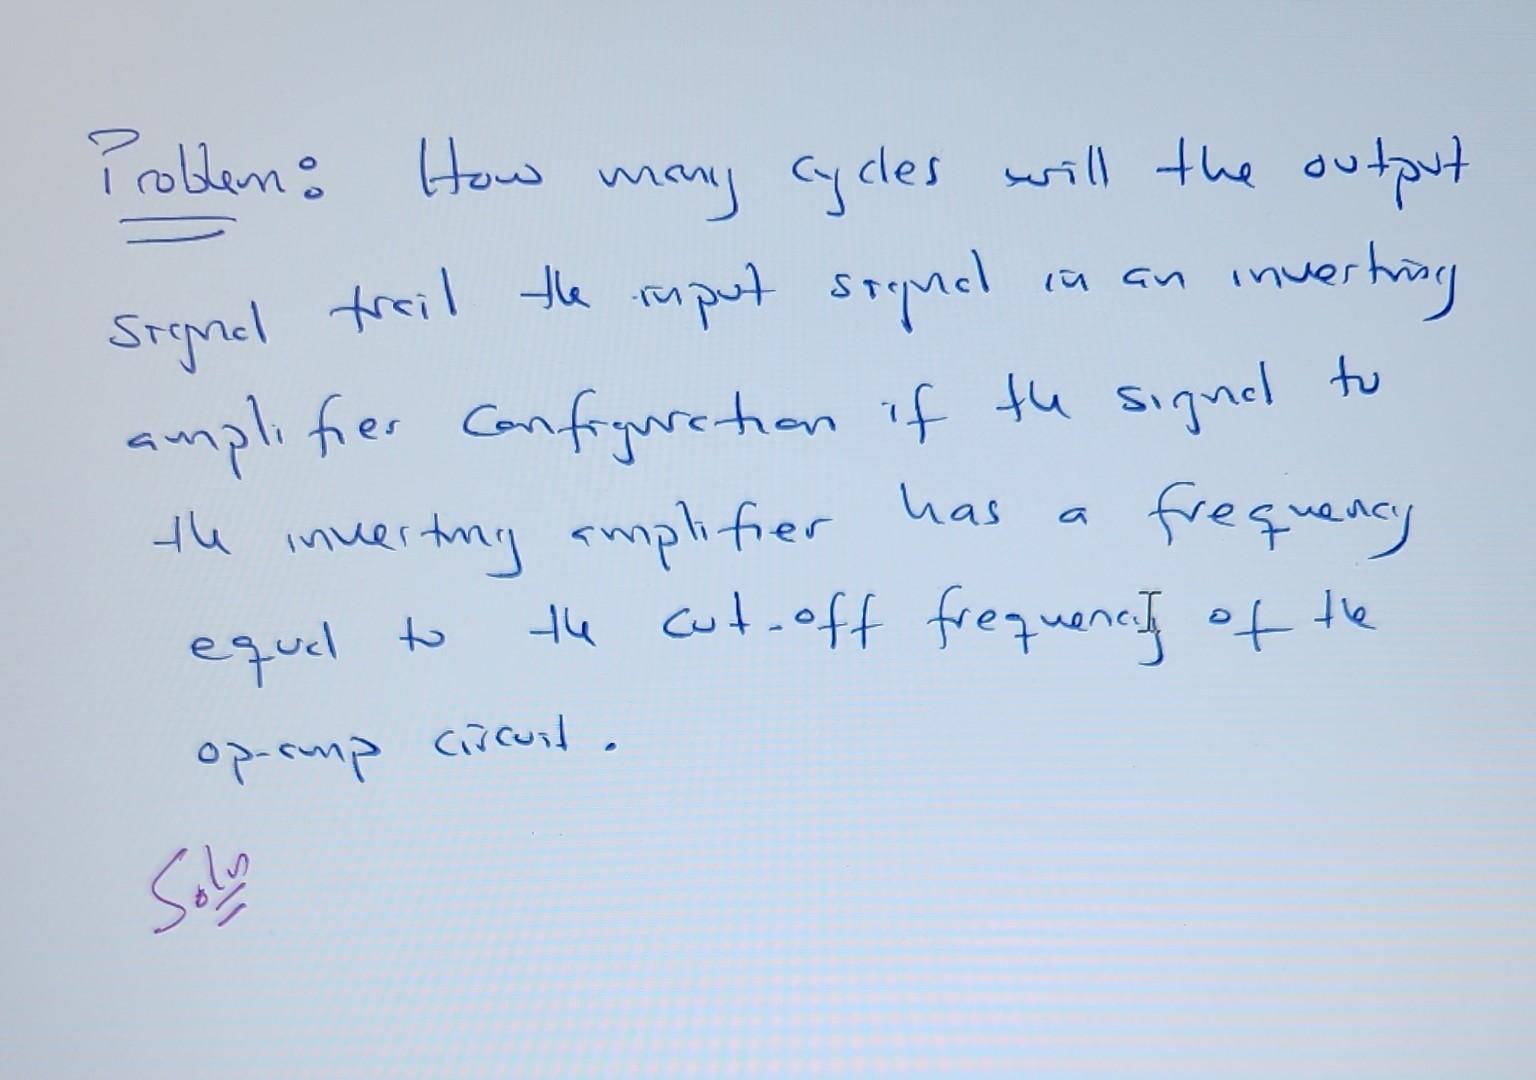 Problem: How many cycles will the output
signal trail the input signal in an inverting
amplifier configuration if the signal to
the inverting amplifier has a frequency
equal to the cut-off frequency of the
op-amp circuit.
Soln